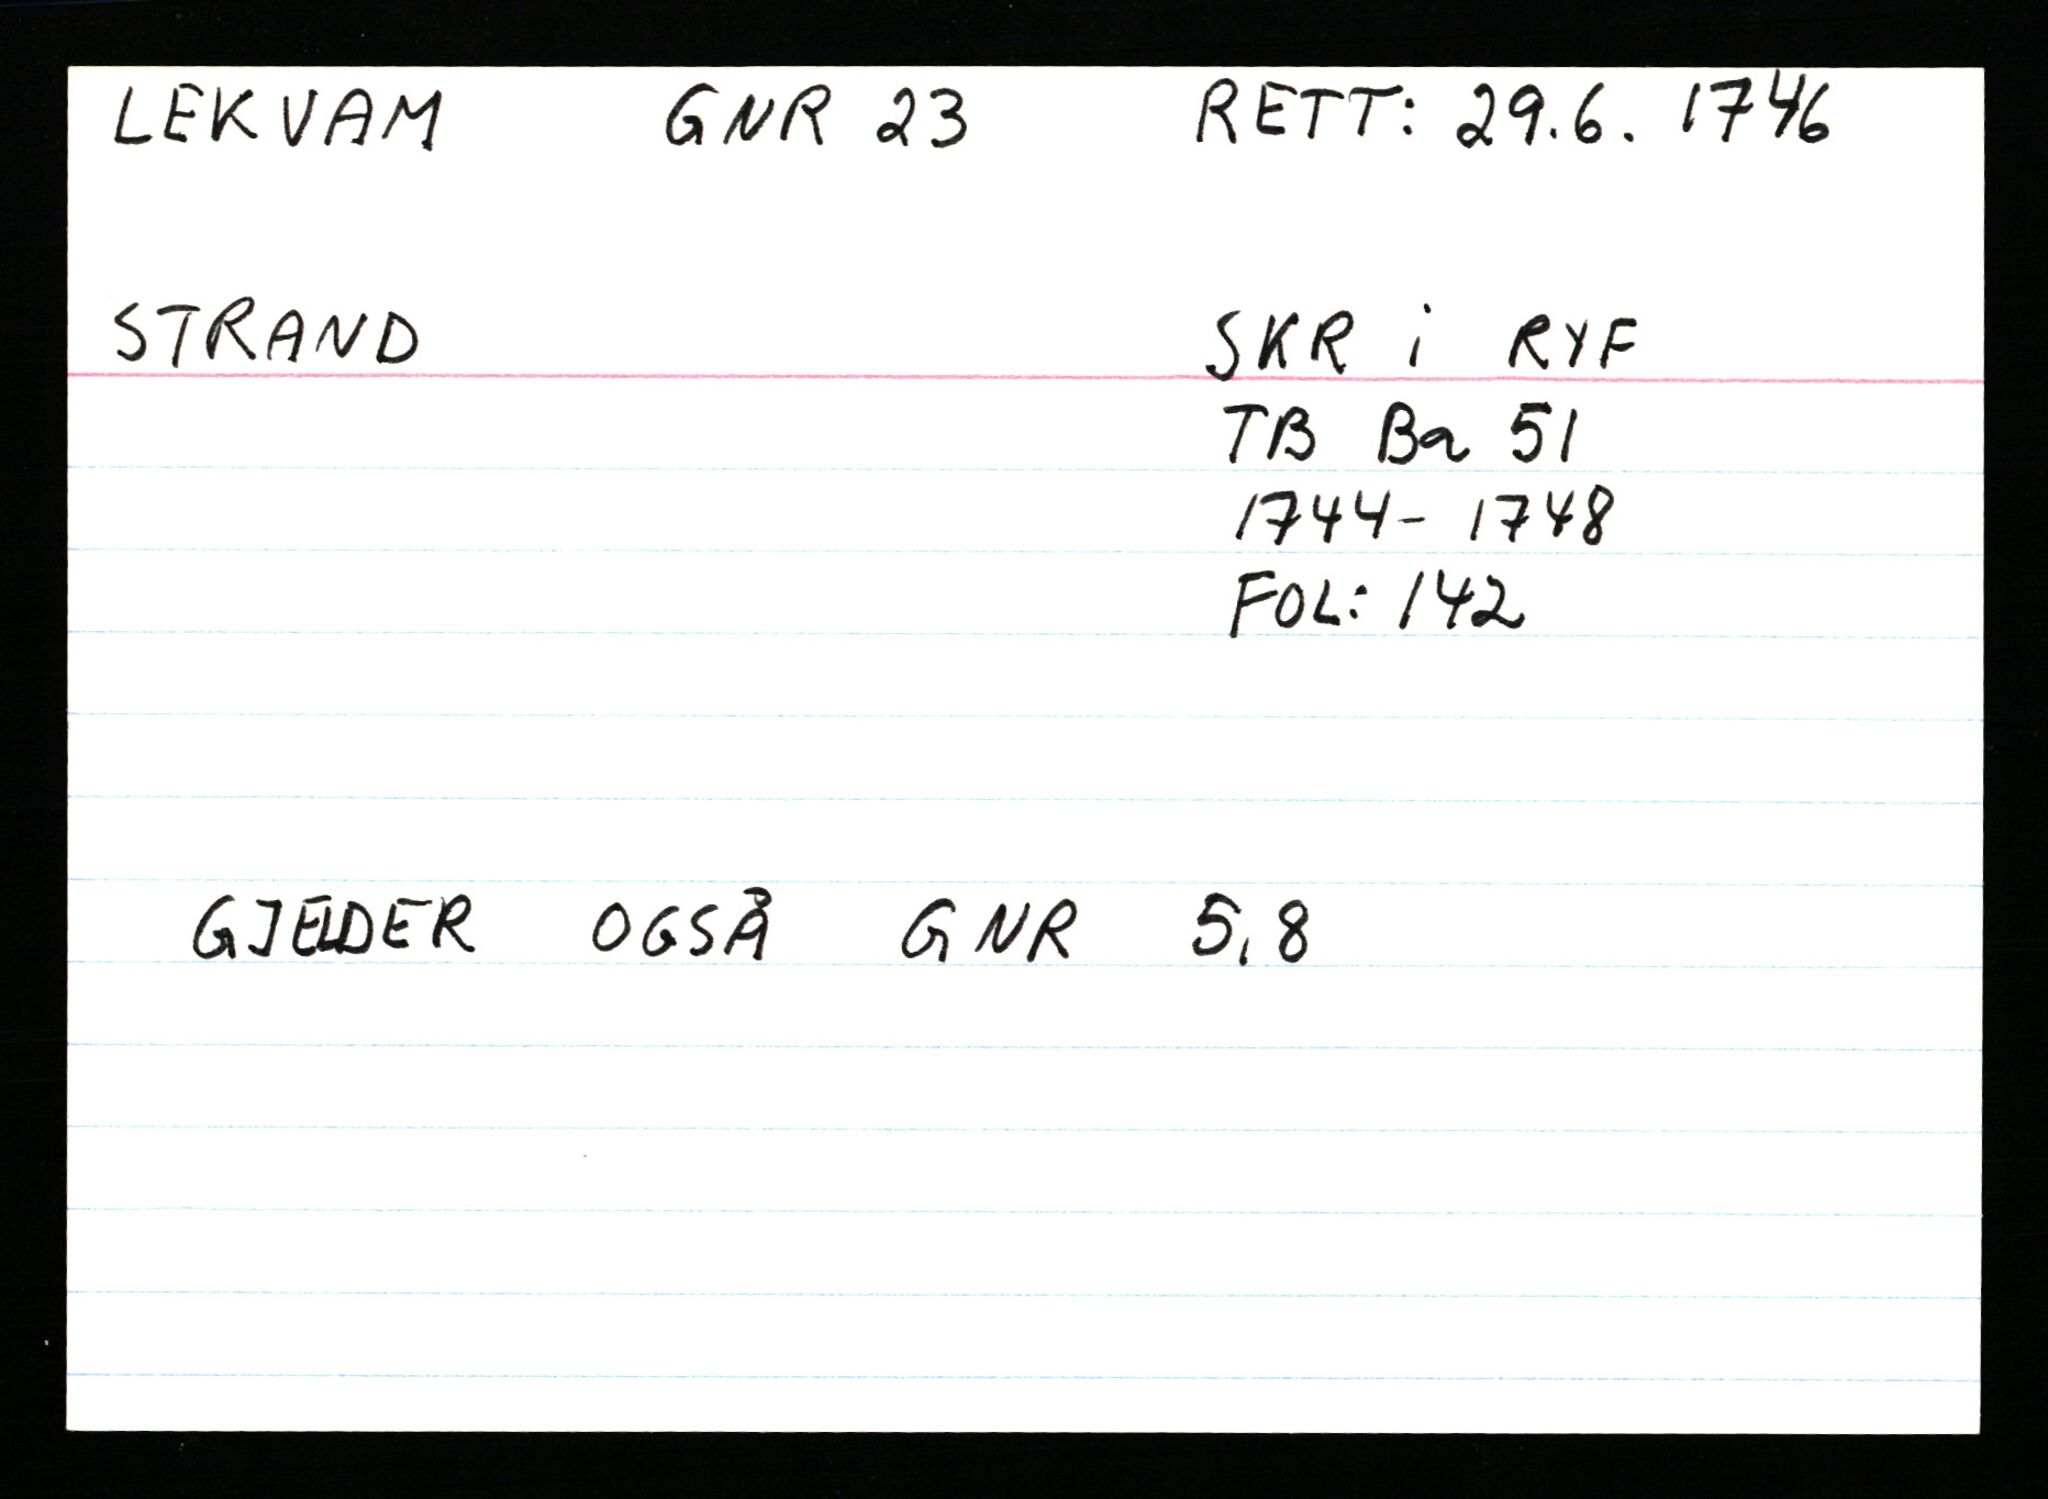 LEKVAM GNR 23 RETT: 29.6. 1746
STRAND SKR i RYF
TB Ba 51
1744- 1748
FOL: 142
GJELDER OGSÅ GNR 5,8